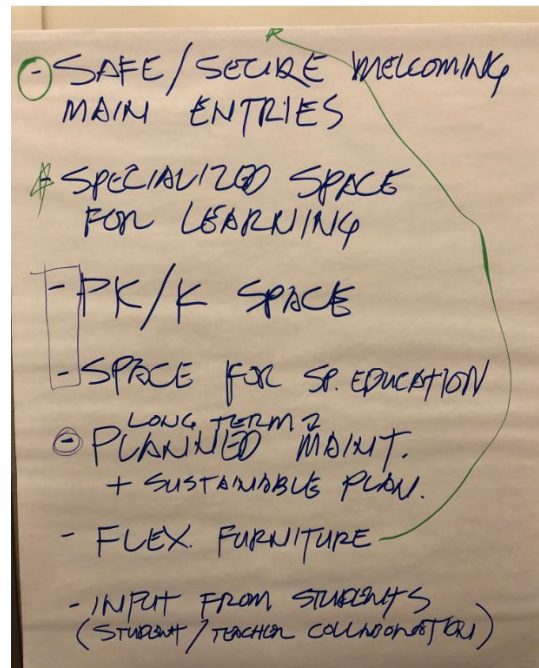 - SAFE/SECURE WELCOMING
MAIN ENTRIES
- SPECIALIZED SPACE
FOR LEARNING
- PK/K SPACE
- SPACE FOR SP. EDUCATION
LONG TERM
- PLANNED MAINT.
+ SUSTAINABLE PLAN.
- FLEX. FURNITURE
- INPUT FROM STUDENTS
(STUDENT/TEACHER COLLABORATION)